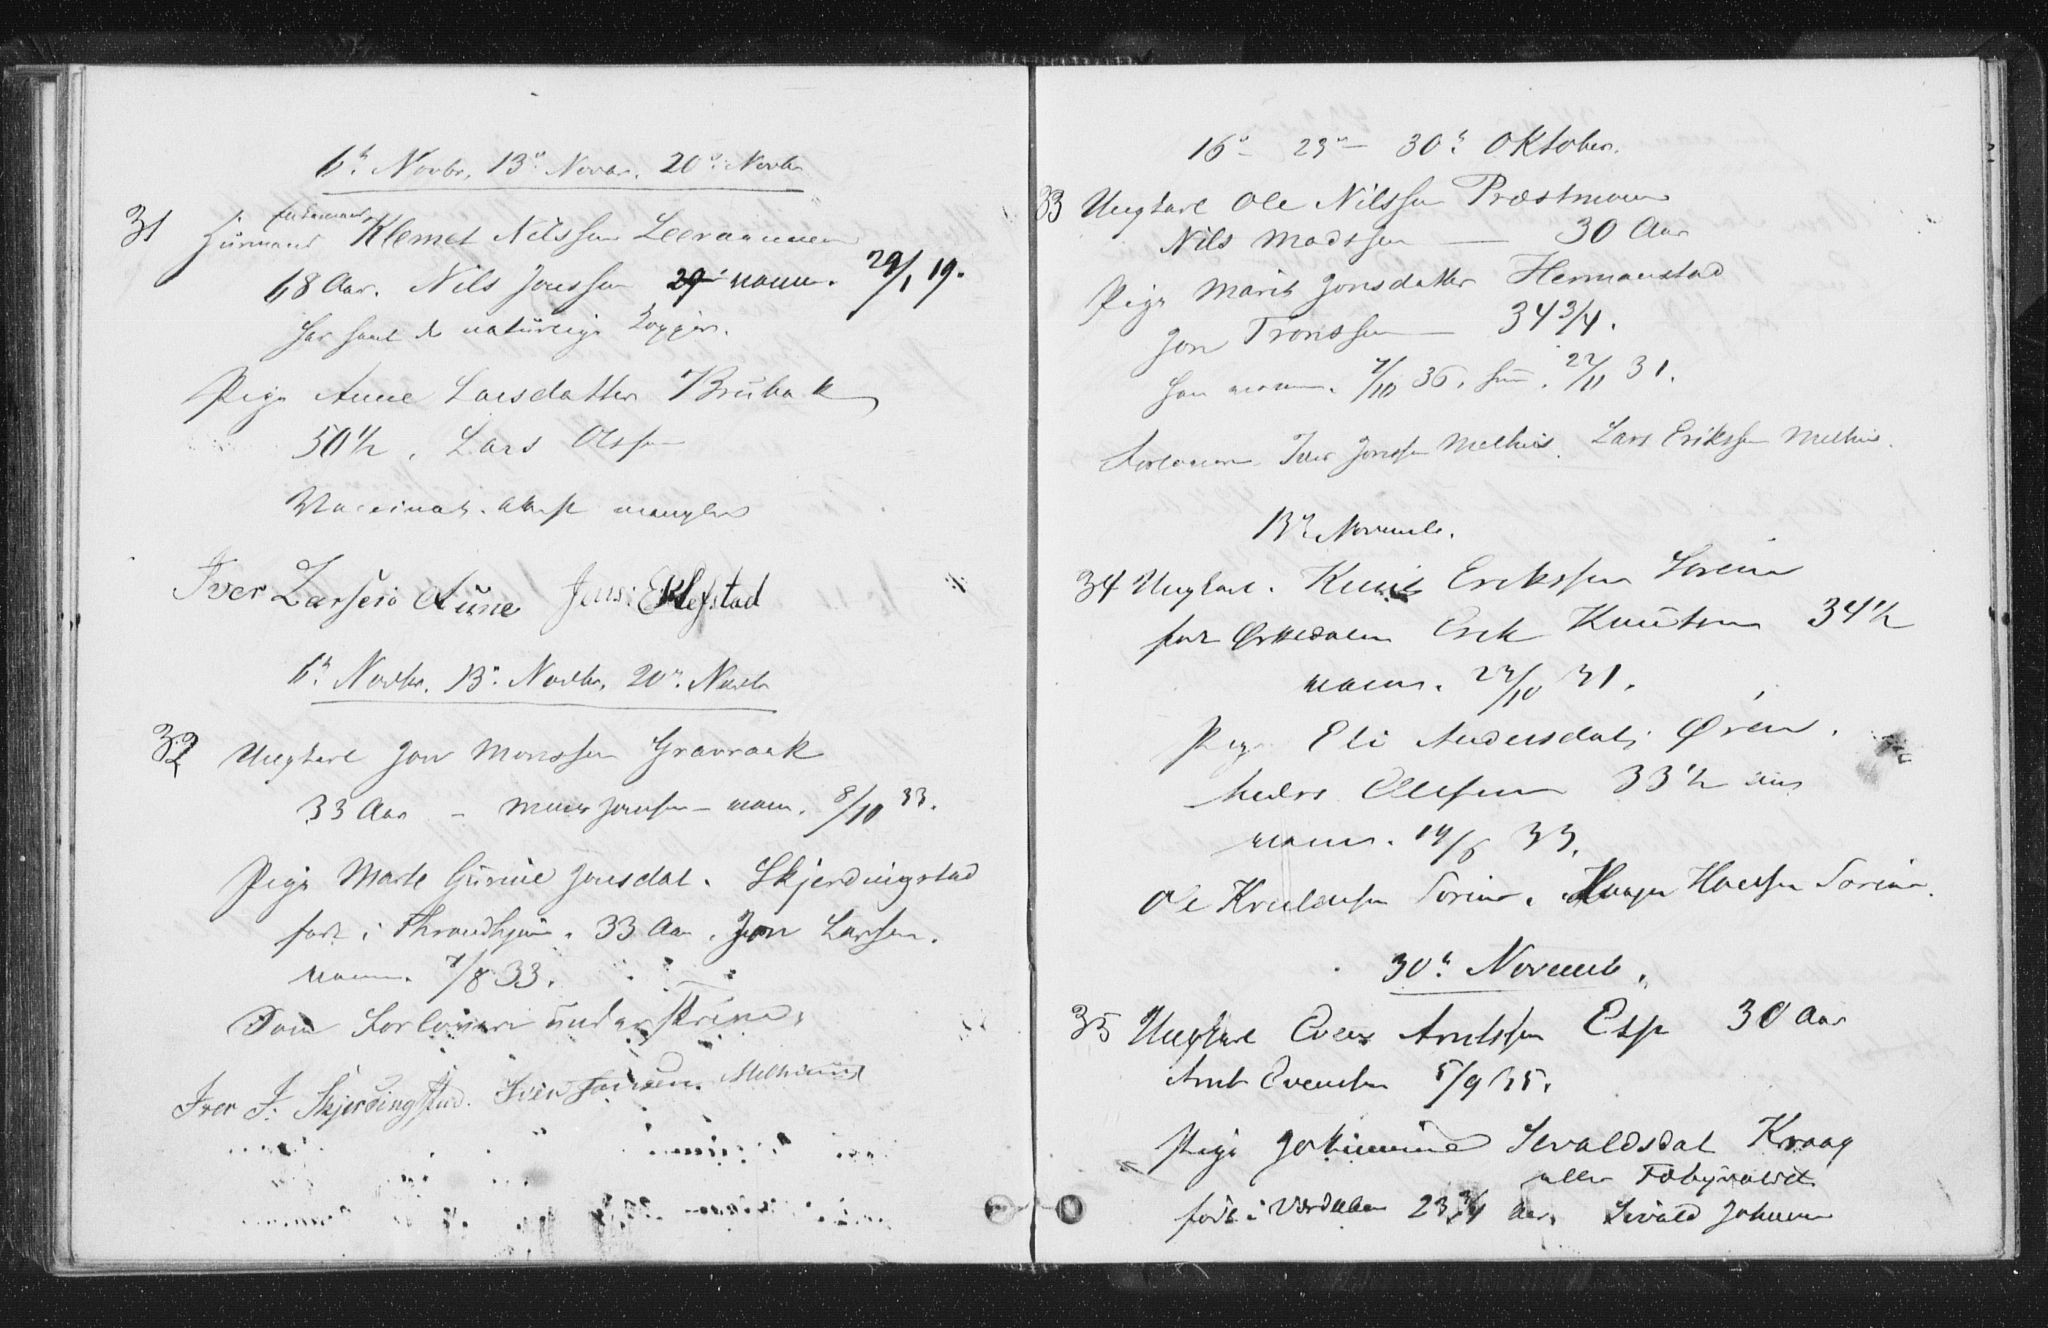 6te Novbr, 13de Novbr. 20de Novbr
31 Huusmand Klemet Nilssen Leeraunnen
68 Aar. Nils Jonssen vacc. 29/1 19.
har havt de naturlige Kopper.
Pige Anne Larsdatter Brubak
50 1/2. Lars Olssen
Vaccinat. attest mangler
Iver Larsen Aune Jens Eklefstad
6te Novbr. 13de Novbr, 20de Novbr
32 Ungkarl Jon Monssen Gravraak
33 Aar - Mons Jonsen - vacc. 8/10 33.
Pige Marte Gurine Jonsdat. Skjerdingstad
født i Throndhjem. 33 Aar. Jon Larsen.
vacc. 7/8 33.
Som Forlovere underskrive,
Iver J. Skjerdingstad. Iver Jonsen. Melhuus
16de 23de 30te Oktober.
33 Ungkarl Ole Nilssen Præstmoen
Nils Madssen — 30 Aar
Pige Marit Jonsdatter Hermanstad
Jon Tronssen — 34 3/4.
Han vacc. 7/10 36. hun. 22/11 31.
Forlovere Iver Jonssen Melhus. Lars Erikssen Melhus.
13de Novemb.
34 Ungkarl. Knut Erikssen Lorein
født Ørkedalen Erik Knutsen 34 1/2
vacc. 23/10 31.
Pige Eli Andersdat. Øren.
Anders Olessen 33 1/2 Aar
vacc. 14/6 33.
Ole Knudssen Sorine. Haagen Hansen Sorine.
30te Novemb.
35 Ungkarl Even Arntssen Esp 30 Aar
Arnt Evensen 5/9 35.
Pige Jokumine Sevaldsdat Kraag
eller Fæbyvaldet
født i Værdalen 23 3/4 Aar. Sivald Johnsen